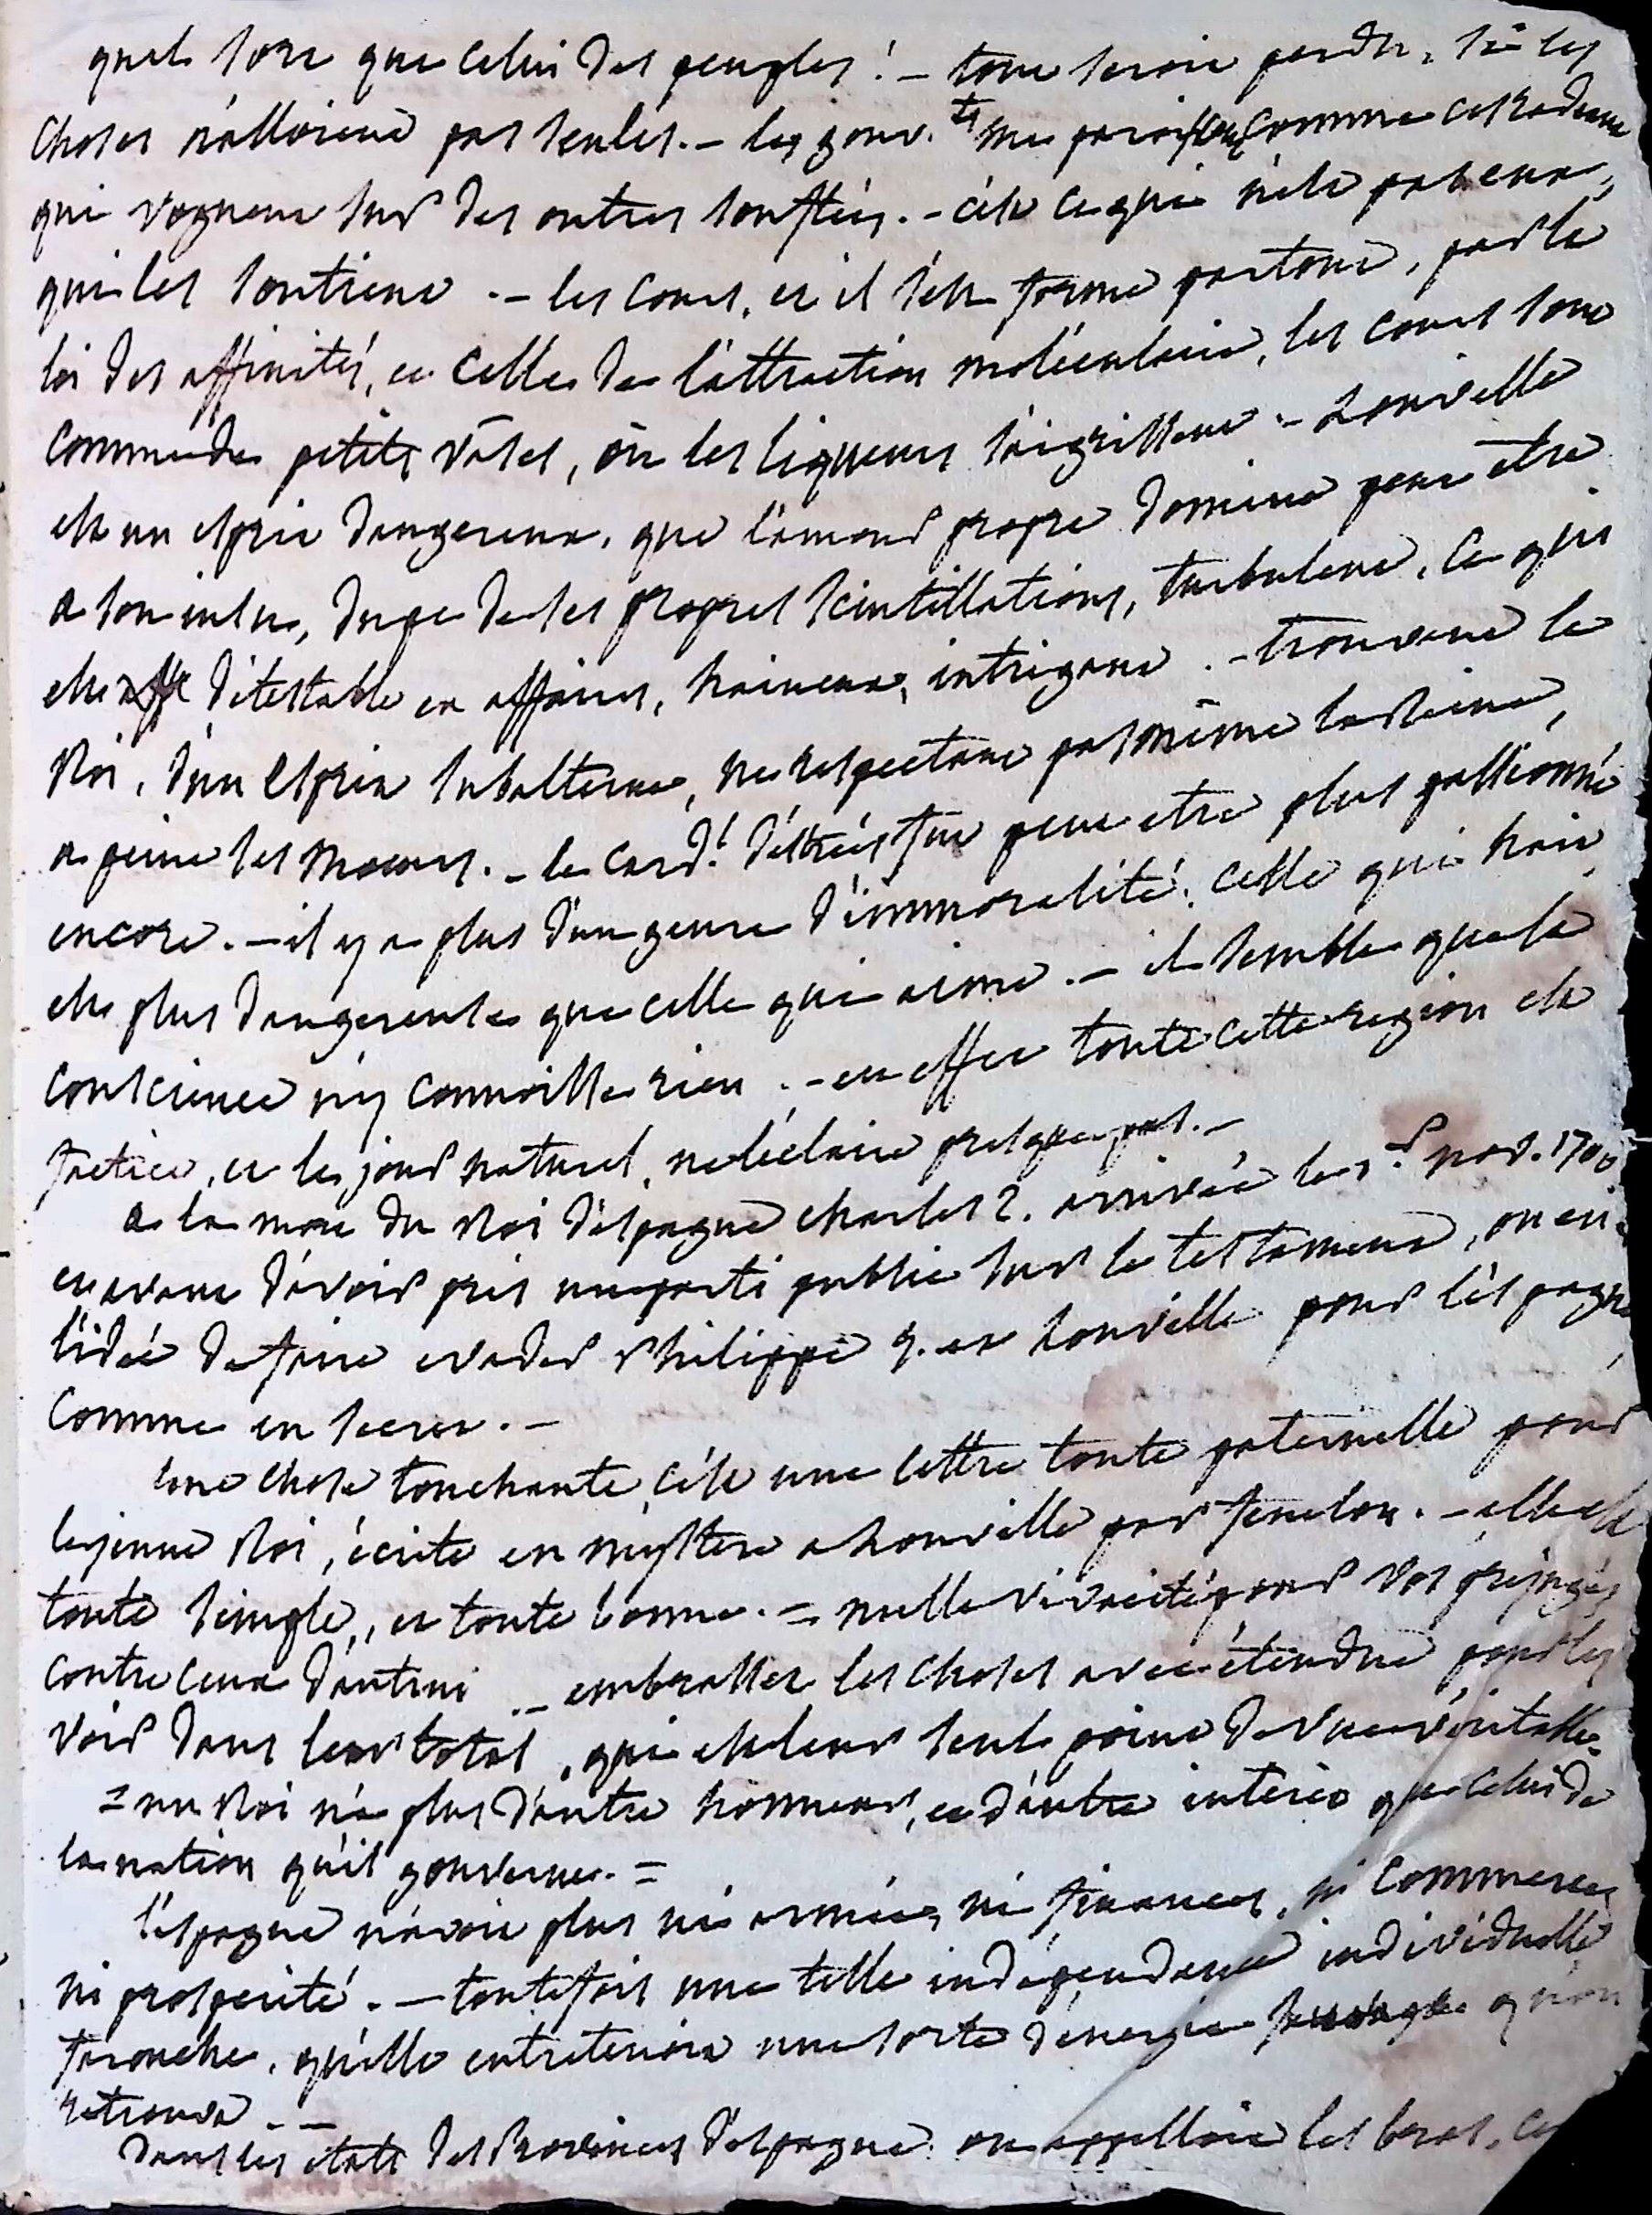 quel sort que celui des peuples ! – tout seroit perdu, si les
choses n'alloient pas seules. – les gouv.ts me paroissent comme ces radeaux
qui voguent sur des outres souflées. – c'est ce qui n'est pas eux,
qui les soutient. – les cours, et il s'en forme partout, par la
loi des affinités, et celle de l'attraction moléculaire, les cours sont
comme de petits vases, où les liqueurs s'aigrissent. – Louville
est un esprit dangereux, que l'amour propre domine peut etre
a son insu, dupe de ses propres scintillations, turbulent, ce qui
est détestable en affaires, haineux, intrigant. – trouvant le
Roi, d'un esprit subalterne, ne respectant pas même la Reine,
a peine les moeurs. – le card.l d'estrées fut peut etre plus passionné
encore. – il y a plus d'un genre d'immoralité, celle qui hait
est plus dangereuse que celle qui aime. – il semble que la
conscience n'y connoisse rien. – en effet toute cette region est
factice, et le jour naturel, ne l'éclaire presque pas. –
a la mort du Roi d'espagne charles 2. arrivée le 1.r nov. 1700
et avant d'avoir pris un parti public sur le testament, on eut
l'idée de faire evader Philippe 5. et Louville pour l'espagne
comme en secret. –
une chose touchante, c'est une lettre toute paternelle pour
le jeune Roi, écrite en mystere a Louville par fenelon. – elle est
toute simple, et toute bonne. = nulle vivacité pour vos préjugés
contre ceux d'autrui – embrasser les choses avec étendue pour les
voir dans leur total, qui est leur seul point de vue véritable.
= un Roi n'a plus d'autre honneur, et d'autre interet que celui de
la nation qu'il gouverne. =
l'espagne n'avoit plus ni armées, ni finances, ni commerce,
ni prosperité. – toutefois une telle indépendance individuelle
farouche, qu'elle entretenoit une sorte d'énergie qu'on
retrouva. –
dans les états des Provinces d'espagne on appelloit les bras, ce